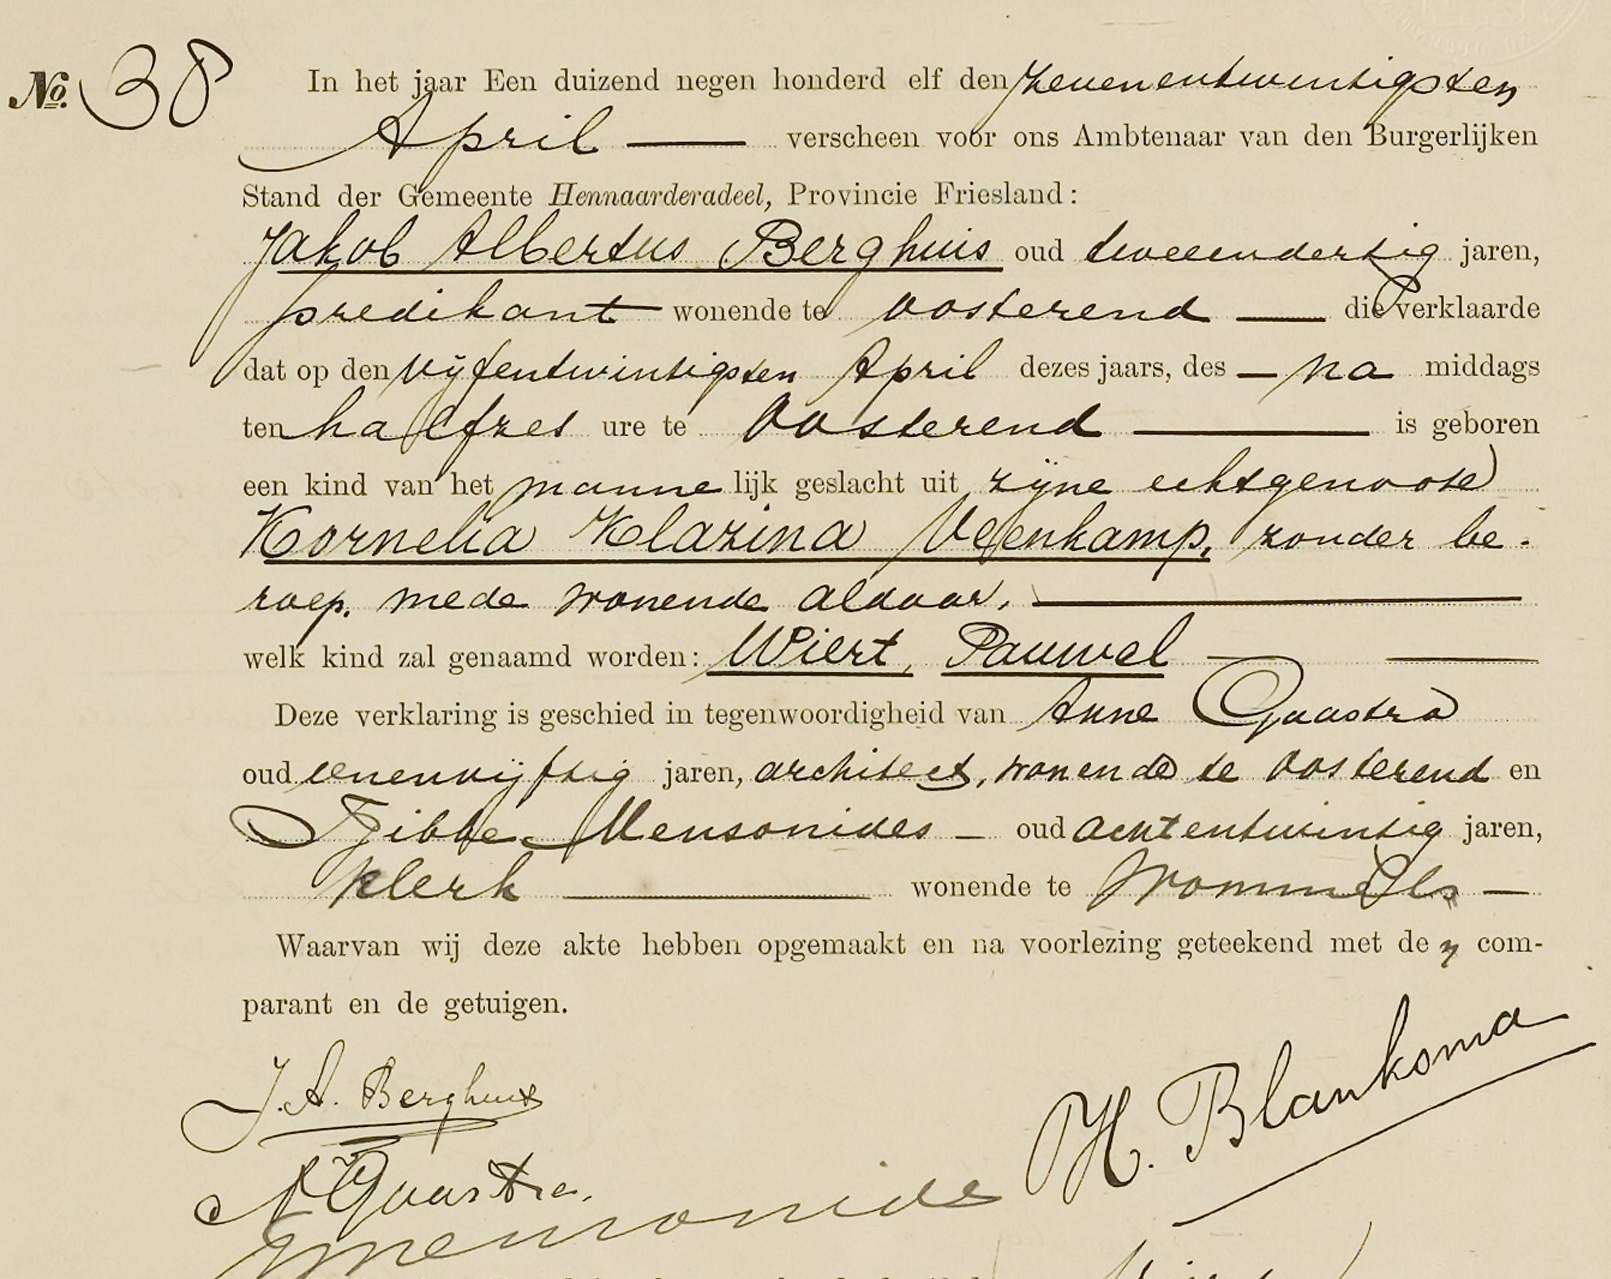 No. 38 In het jaar Een duizend negen honderd elf den zevenentwintigsten
April — verscheen voor ons Ambtenaar van den Burgerlijken
Stand der Gemeente Hennaarderadeel, Provincie Friesland:
Jakob Albertus Berghuis oud tweeendertig jaren,
predikant wonende te Oosterend — die verklaarde
dat op den vijfentwintigsten April dezes jaars, des — na middags
ten halfzes ure te Oosterend — is geboren
een kind van het manne lijk geslacht uit zijne echtgenoote
Kornelia Klazina Veenkamp, zonder be-
roep, mede wonende aldaar. —
welk kind zal genaamd worden: Wiert, Pauwel — —
Deze verklaring is geschied in tegenwoordigheid van Anne Gaastra
oud eenenvijftig jaren, architect, wonende te Oosterend en
Tjibbe Mensonides — oud achtentwintig jaren,
klerk — wonende te Wommels —
Waarvan wij deze akte hebben opgemaakt en na voorlezing geteekend met de n com-
parant en de getuigen.
J. A. Berghuis
H. Blanksma
A Gaastra.
TMensonides